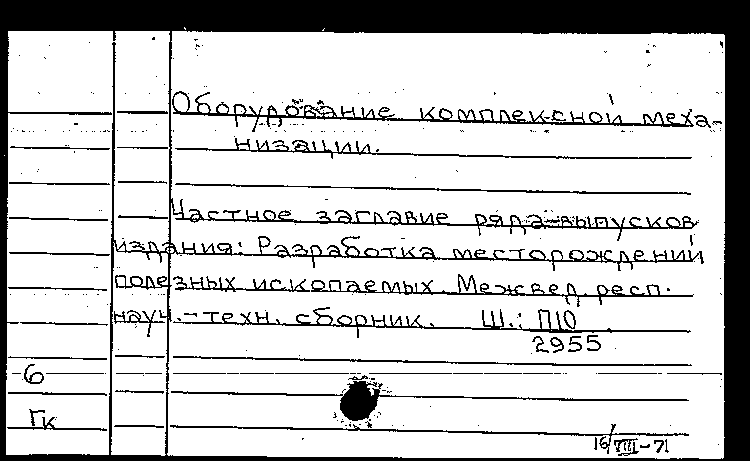 Оборудование комплексной меха-
низации.
Частное заглавие ряда выпусков
издания: Разработка месторождений
полезных ископаемых. Межвед. респ.
науч.-техн. сборник. Ш.: П10
2955
6
Гк
16/VIII-71